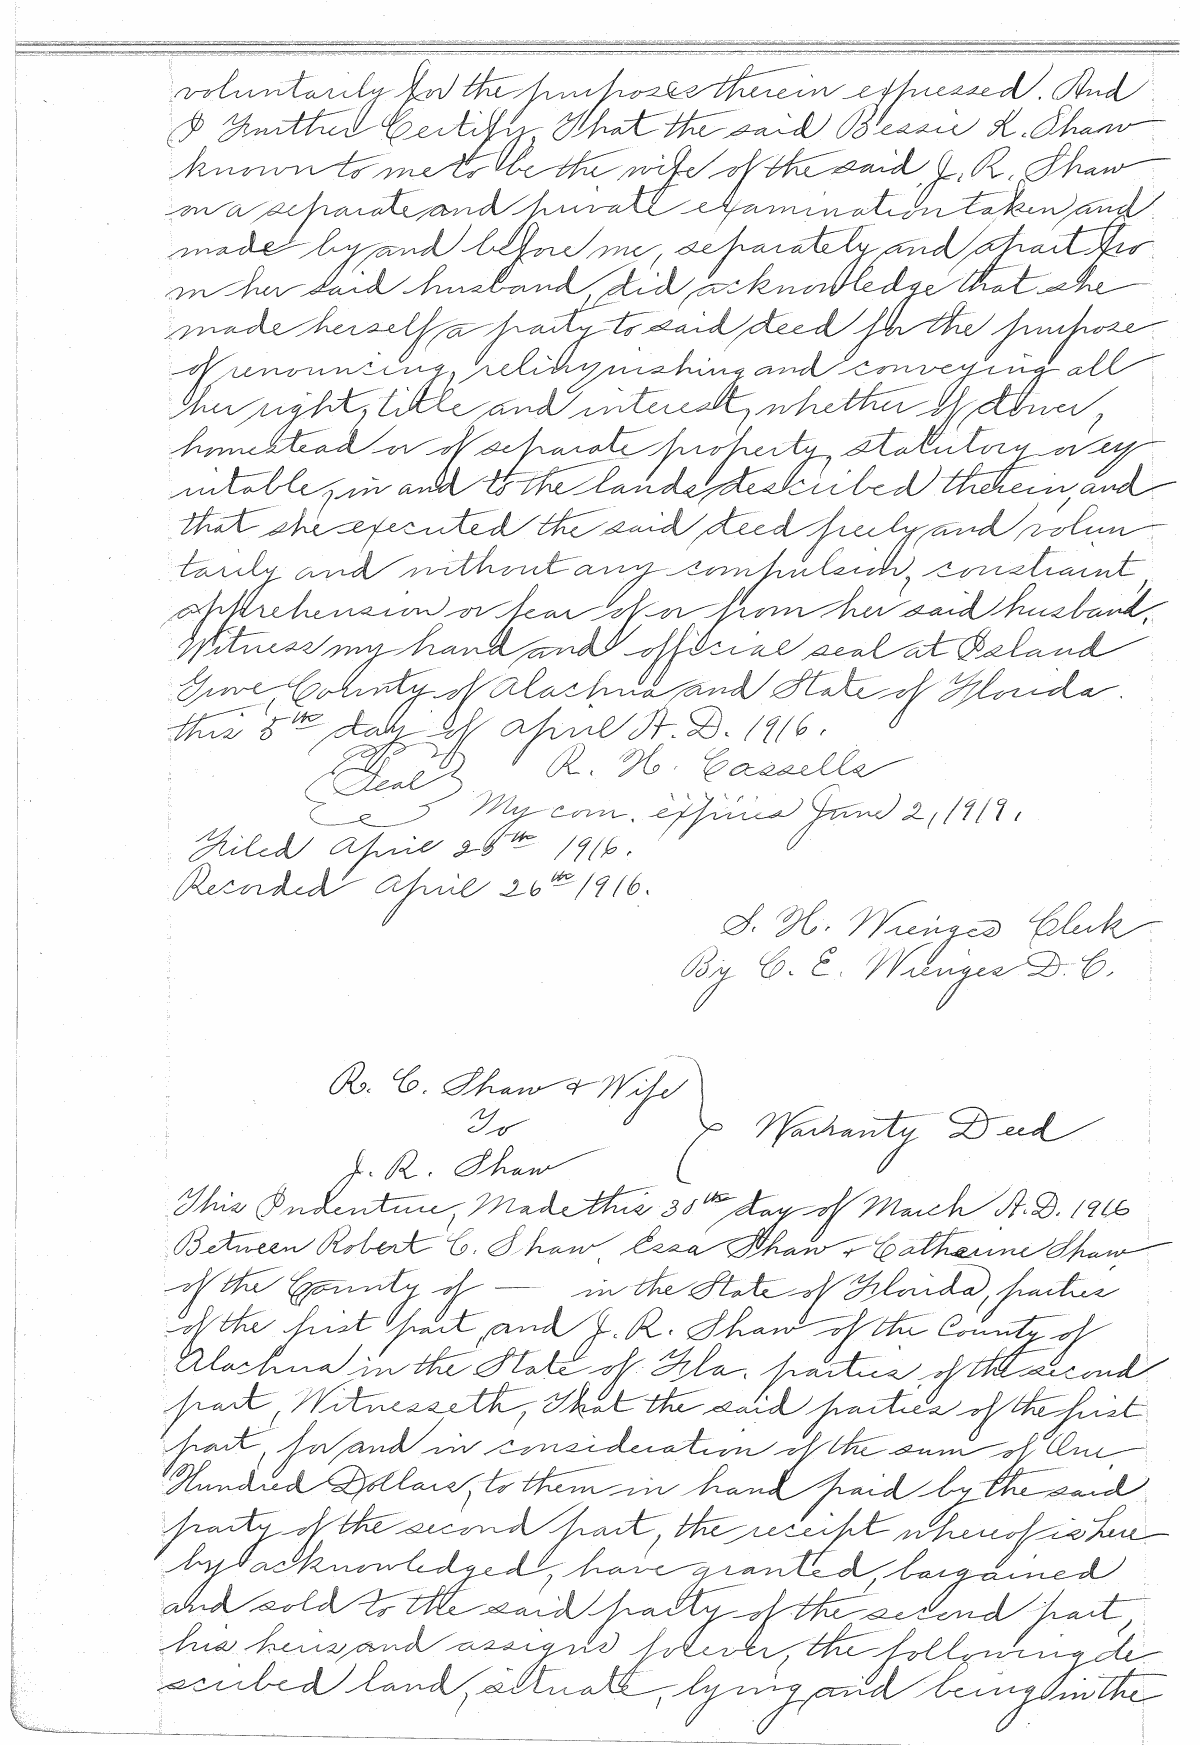 voluntarily for the purposes therein expressed. And
I Further Certify, That the said Bessie K. Shaw
known to me to be the wife of the said J. R. Shaw
on a separate and private examination taken and
made by and before me, separately and apart fro
m her said husband, did acknowledge that she
made herself a party to said deed for the purpose
of renouncing, relinquishing and conveying all
her right, title and interest, whether of dower,
homestead or of separate property, statutory or eq
uitable, in and to the lands described therein, and
that she executed the said deed freely and volun
tarily and without any compulsion, constraint,
apprehension or fear of or from her said husband.
Witness my hand and official seal at Island
Grove, County of Alachua and State of Florida.
this 5th day of April A. D. 1916.
Seal R. H. Cassells
My com. expires June 2, 1919.
Filed April 25th 1916.
Recorded April 26th 1916.
S. H. Wienges Clerk
By C. E. Wienges D. C.
R. C. Shaw & Wife
To
Warranty Deed
J. R. Shaw
This Indenture, Made this 30th day of March A. D. 1916
Between Robert C. Shaw, Essa Shaw & Catherine Shaw
of the County of — in the State of Florida, parties
of the first part, and J. R. Shaw of the County of
Alachua in the State of Fla. parties of the second
part, Witnesseth, That the said parties of the first
part, for and in consideration of the sum of One
Hundred Dollars, to them in hand paid by the said
party of the second part, the receipt whereof is here
by acknowledged, have granted, bargained
and sold to the said party of the second part,
his heirs and assigns forever, the following de
scribed land, situate, lying and being in the